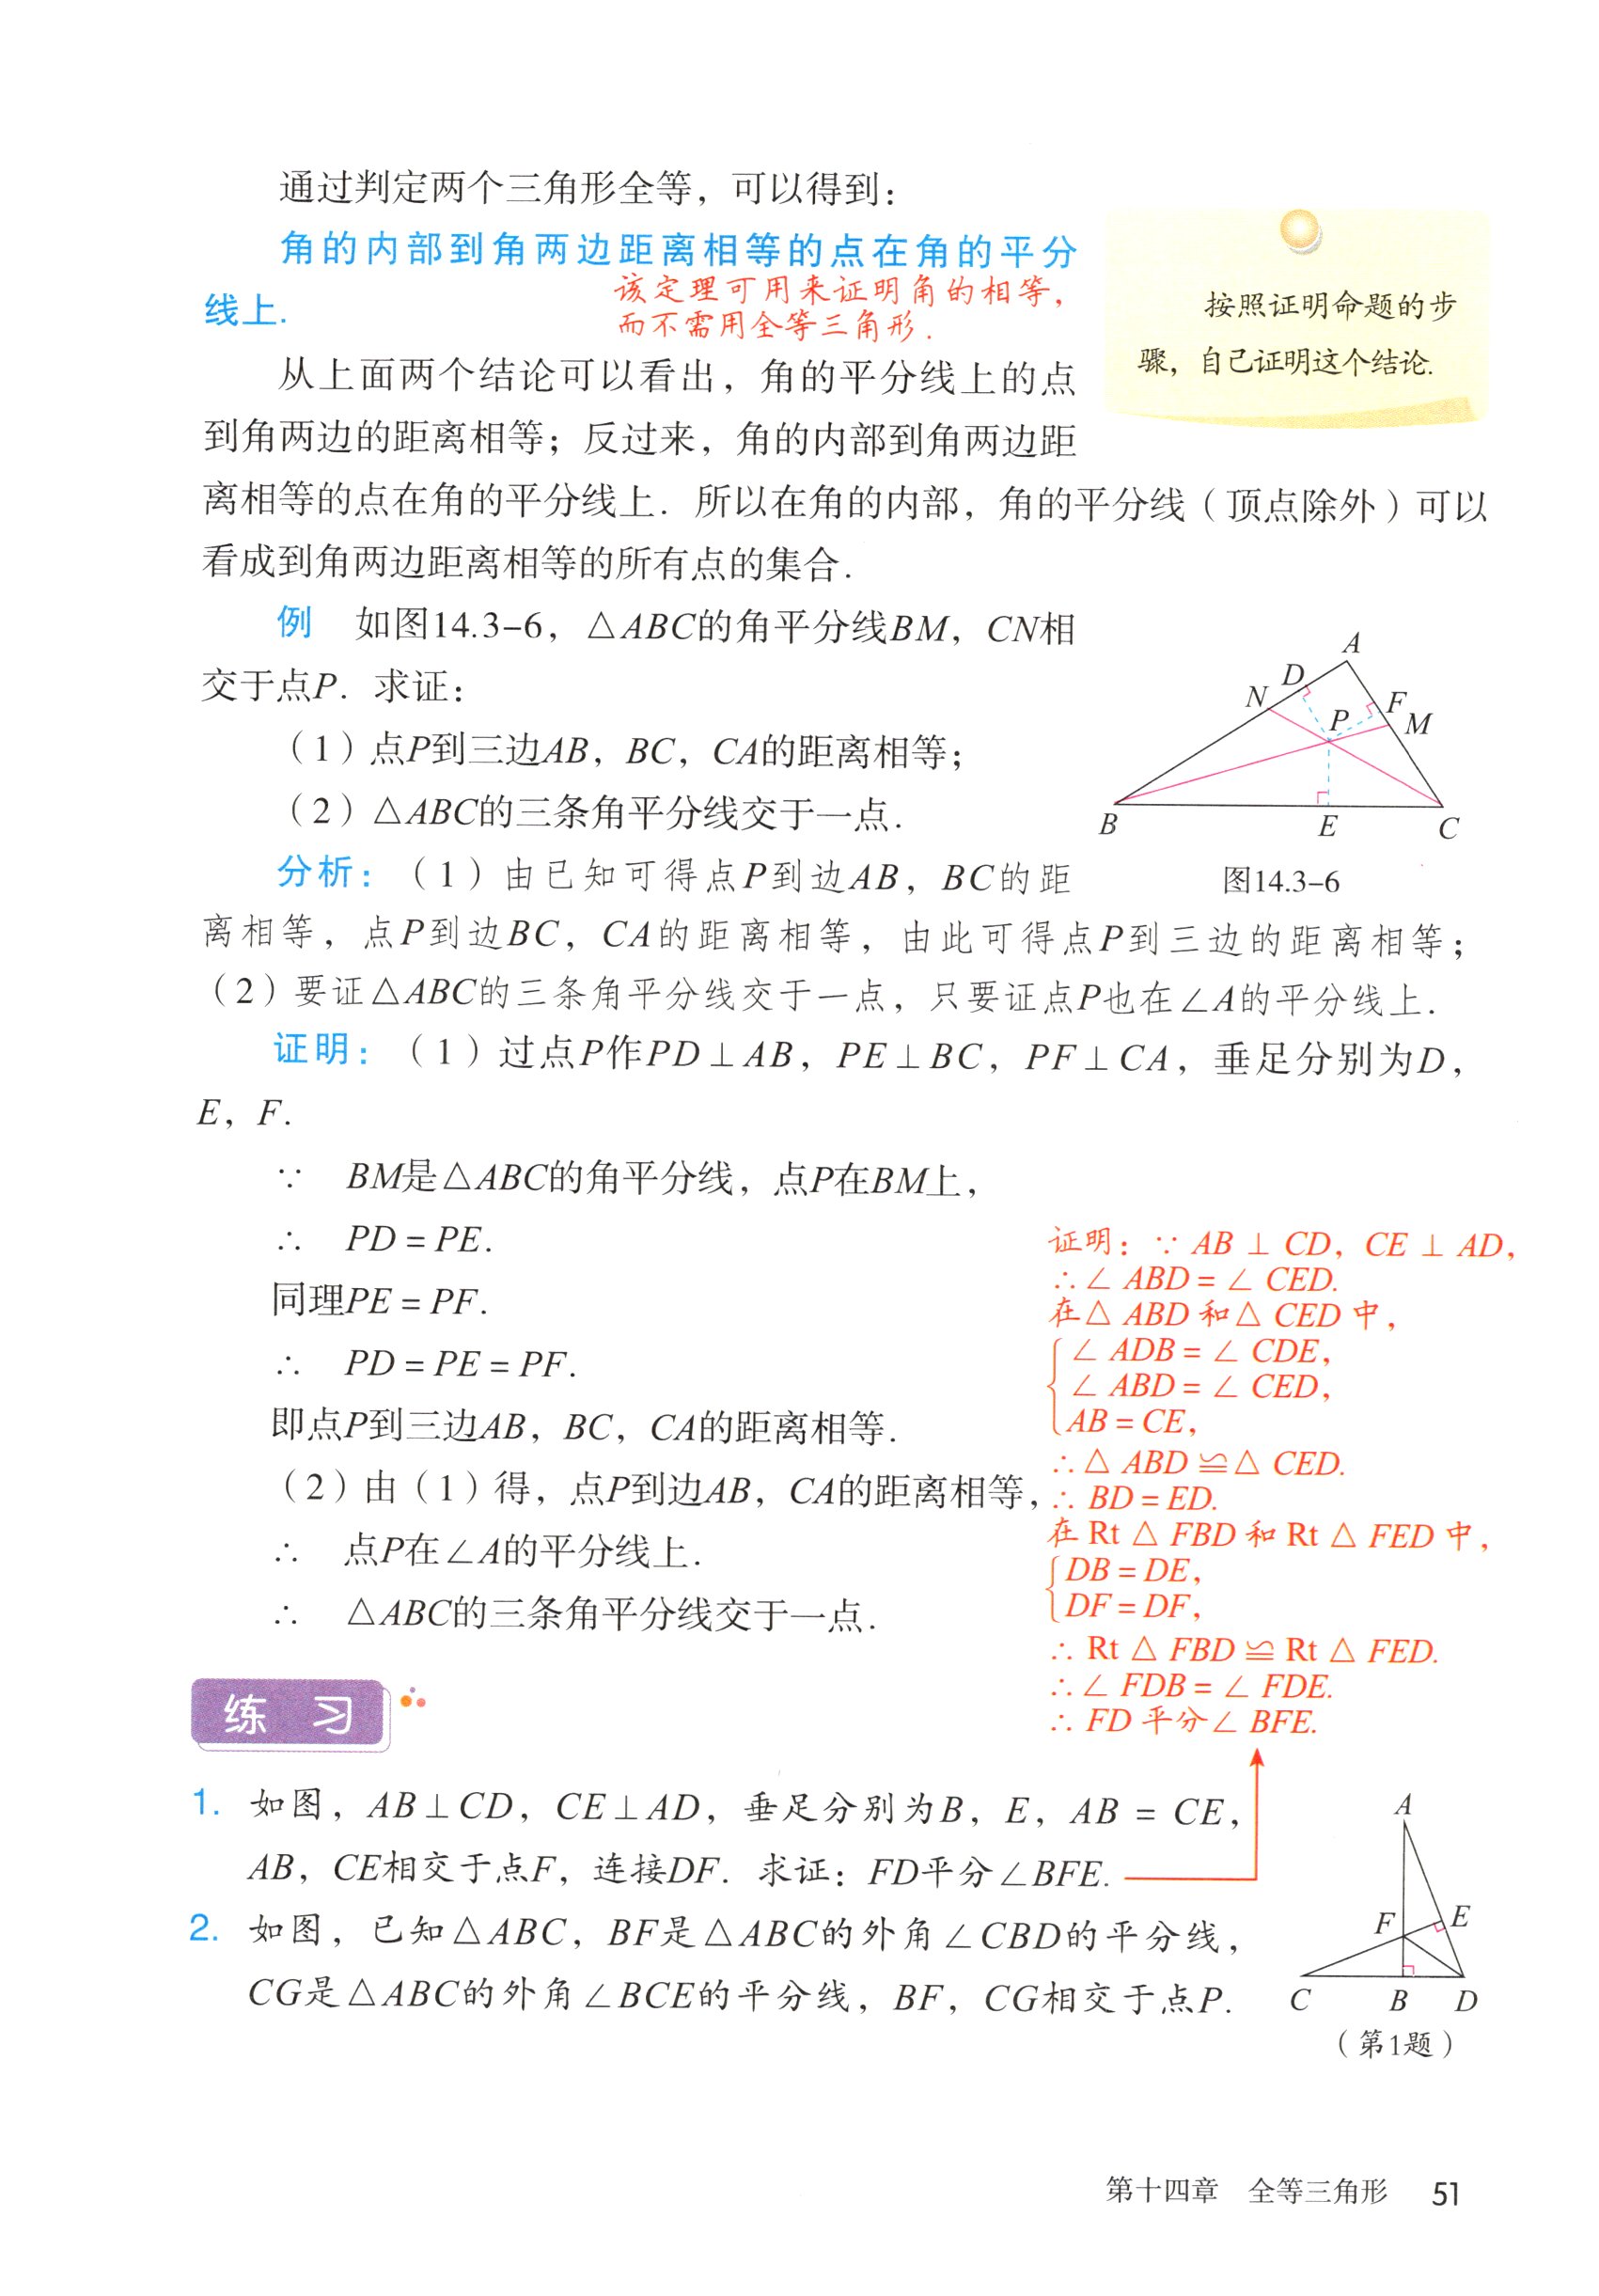 通过判定两个三角形全等，可以得到：
角的内部到角两边距离相等的点在角的平分
线上.
该定理可用来证明角的相等，
而不需用全等三角形．
按照证明命题的步
骤，自己证明这个结论.
从上面两个结论可以看出，角的平分线上的点
到角两边的距离相等；反过来，角的内部到角两边距
离相等的点在角的平分线上．所以在角的内部，角的平分线（顶点除外）可以
看成到角两边距离相等的所有点的集合．
例 如图14.3-6，△ABC的角平分线BM，CN相
交于点P．求证：
（1）点P到三边AB，BC，CA的距离相等；
（2）△ABC的三条角平分线交于一点．
A
D
N
F
P
M
B
E
C
图14.3-6
分析：（1）由已知可得点P到边AB，BC的距
离相等，点P到边BC，CA的距离相等，由此可得点P到三边的距离相等；
（2）要证△ABC的三条角平分线交于一点，只要证点P也在∠A的平分线上．
证明：（1）过点P作PD⊥AB，PE⊥BC，PF⊥CA，垂足分别为D，
E，F.
∵ BM是△ABC的角平分线，点P在BM上，
∴ PD = PE.
同理PE = PF.
∴ PD = PE = PF.
即点P到三边AB，BC，CA的距离相等．
（2）由（1）得，点P到边AB，CA的距离相等，
∴ 点P在∠A的平分线上．
∴ △ABC的三条角平分线交于一点．
证明：∵ AB ⊥ CD，CE ⊥ AD，
∴ ∠ ABD = ∠ CED.
在△ ABD 和△ CED 中，
∠ ADB = ∠ CDE，
∠ ABD = ∠ CED，
AB = CE，
∴ △ ABD ≌ △ CED.
∴ BD = ED.
在 Rt △ FBD 和 Rt △ FED 中，
DB = DE，
DF = DF，
∴ Rt △ FBD ≌ Rt △ FED.
∴ ∠ FDB = ∠ FDE.
∴ FD 平分∠ BFE.
练 习
1. 如图，AB⊥CD，CE⊥AD，垂足分别为B，E，AB = CE，
AB，CE相交于点F，连接DF．求证：FD平分∠BFE.
2. 如图，已知△ABC，BF是△ABC的外角∠CBD的平分线，
CG是△ABC的外角∠BCE的平分线，BF，CG相交于点P.
A
F
E
C
B
D
（第1题）
第十四章 全等三角形 51